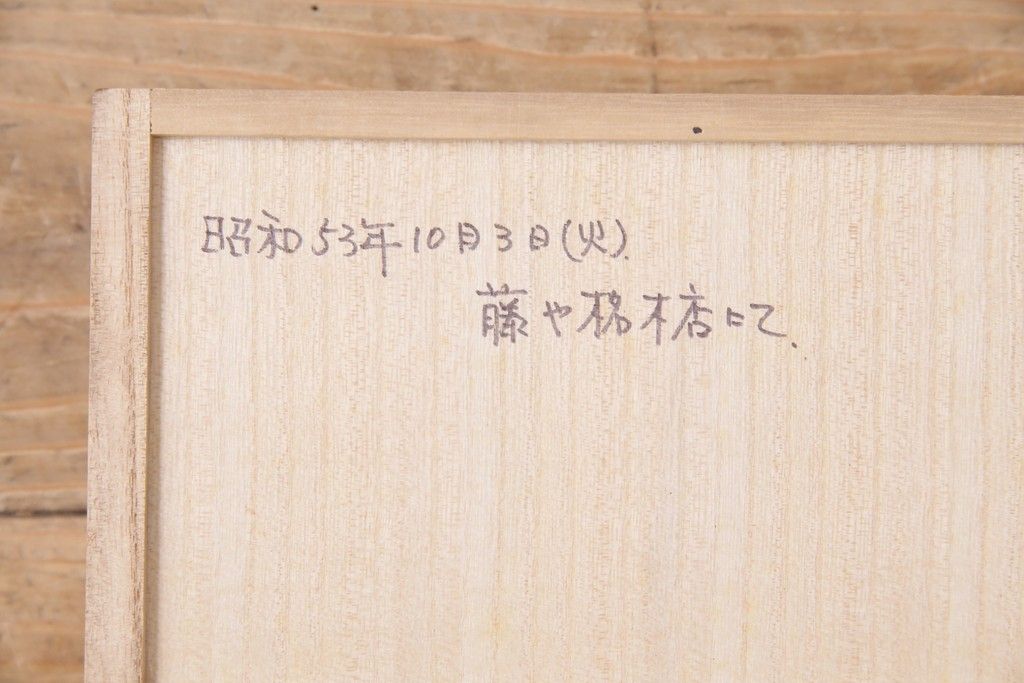 昭和53年10月3日(火).
藤や 木店にて.